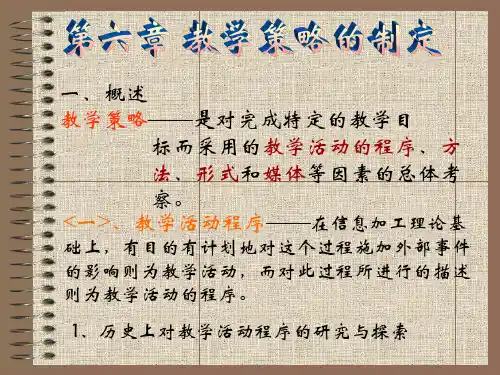 第六章 教学策略的制定
一、概述
教学策略——是对完成特定的教学目
标而采用的教学活动的程序、方
法、形式和媒体等因素的总体考
察。
<一>、教学活动程序——在信息加工理论基
础上，有目的有计划地对这个过程施加外部事件
的影响则为教学活动，而对此过程所进行的描述
则为教学活动的程序。
1、历史上对教学活动程序的研究与探索